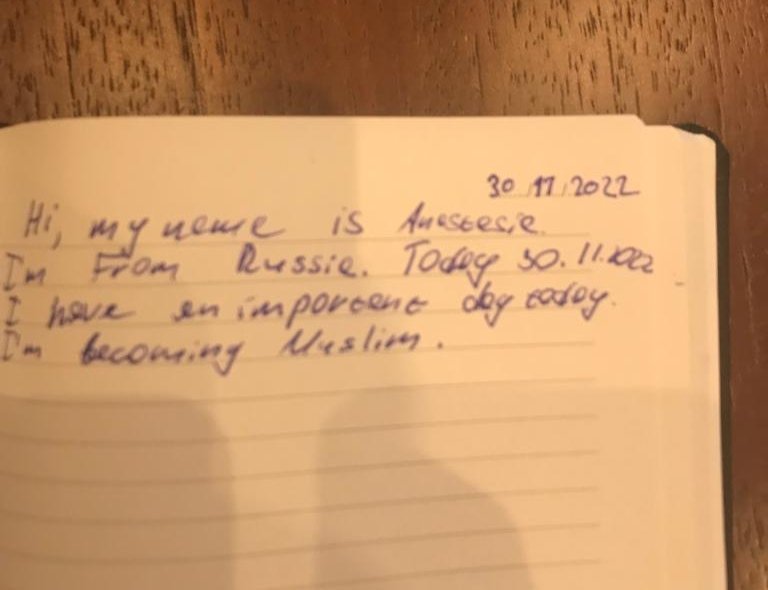 30.11.2022
Hi, my name is Anastasia.
I'm From Russia. Today 30.11.2022
I have an important day today.
I'm becoming Muslim.